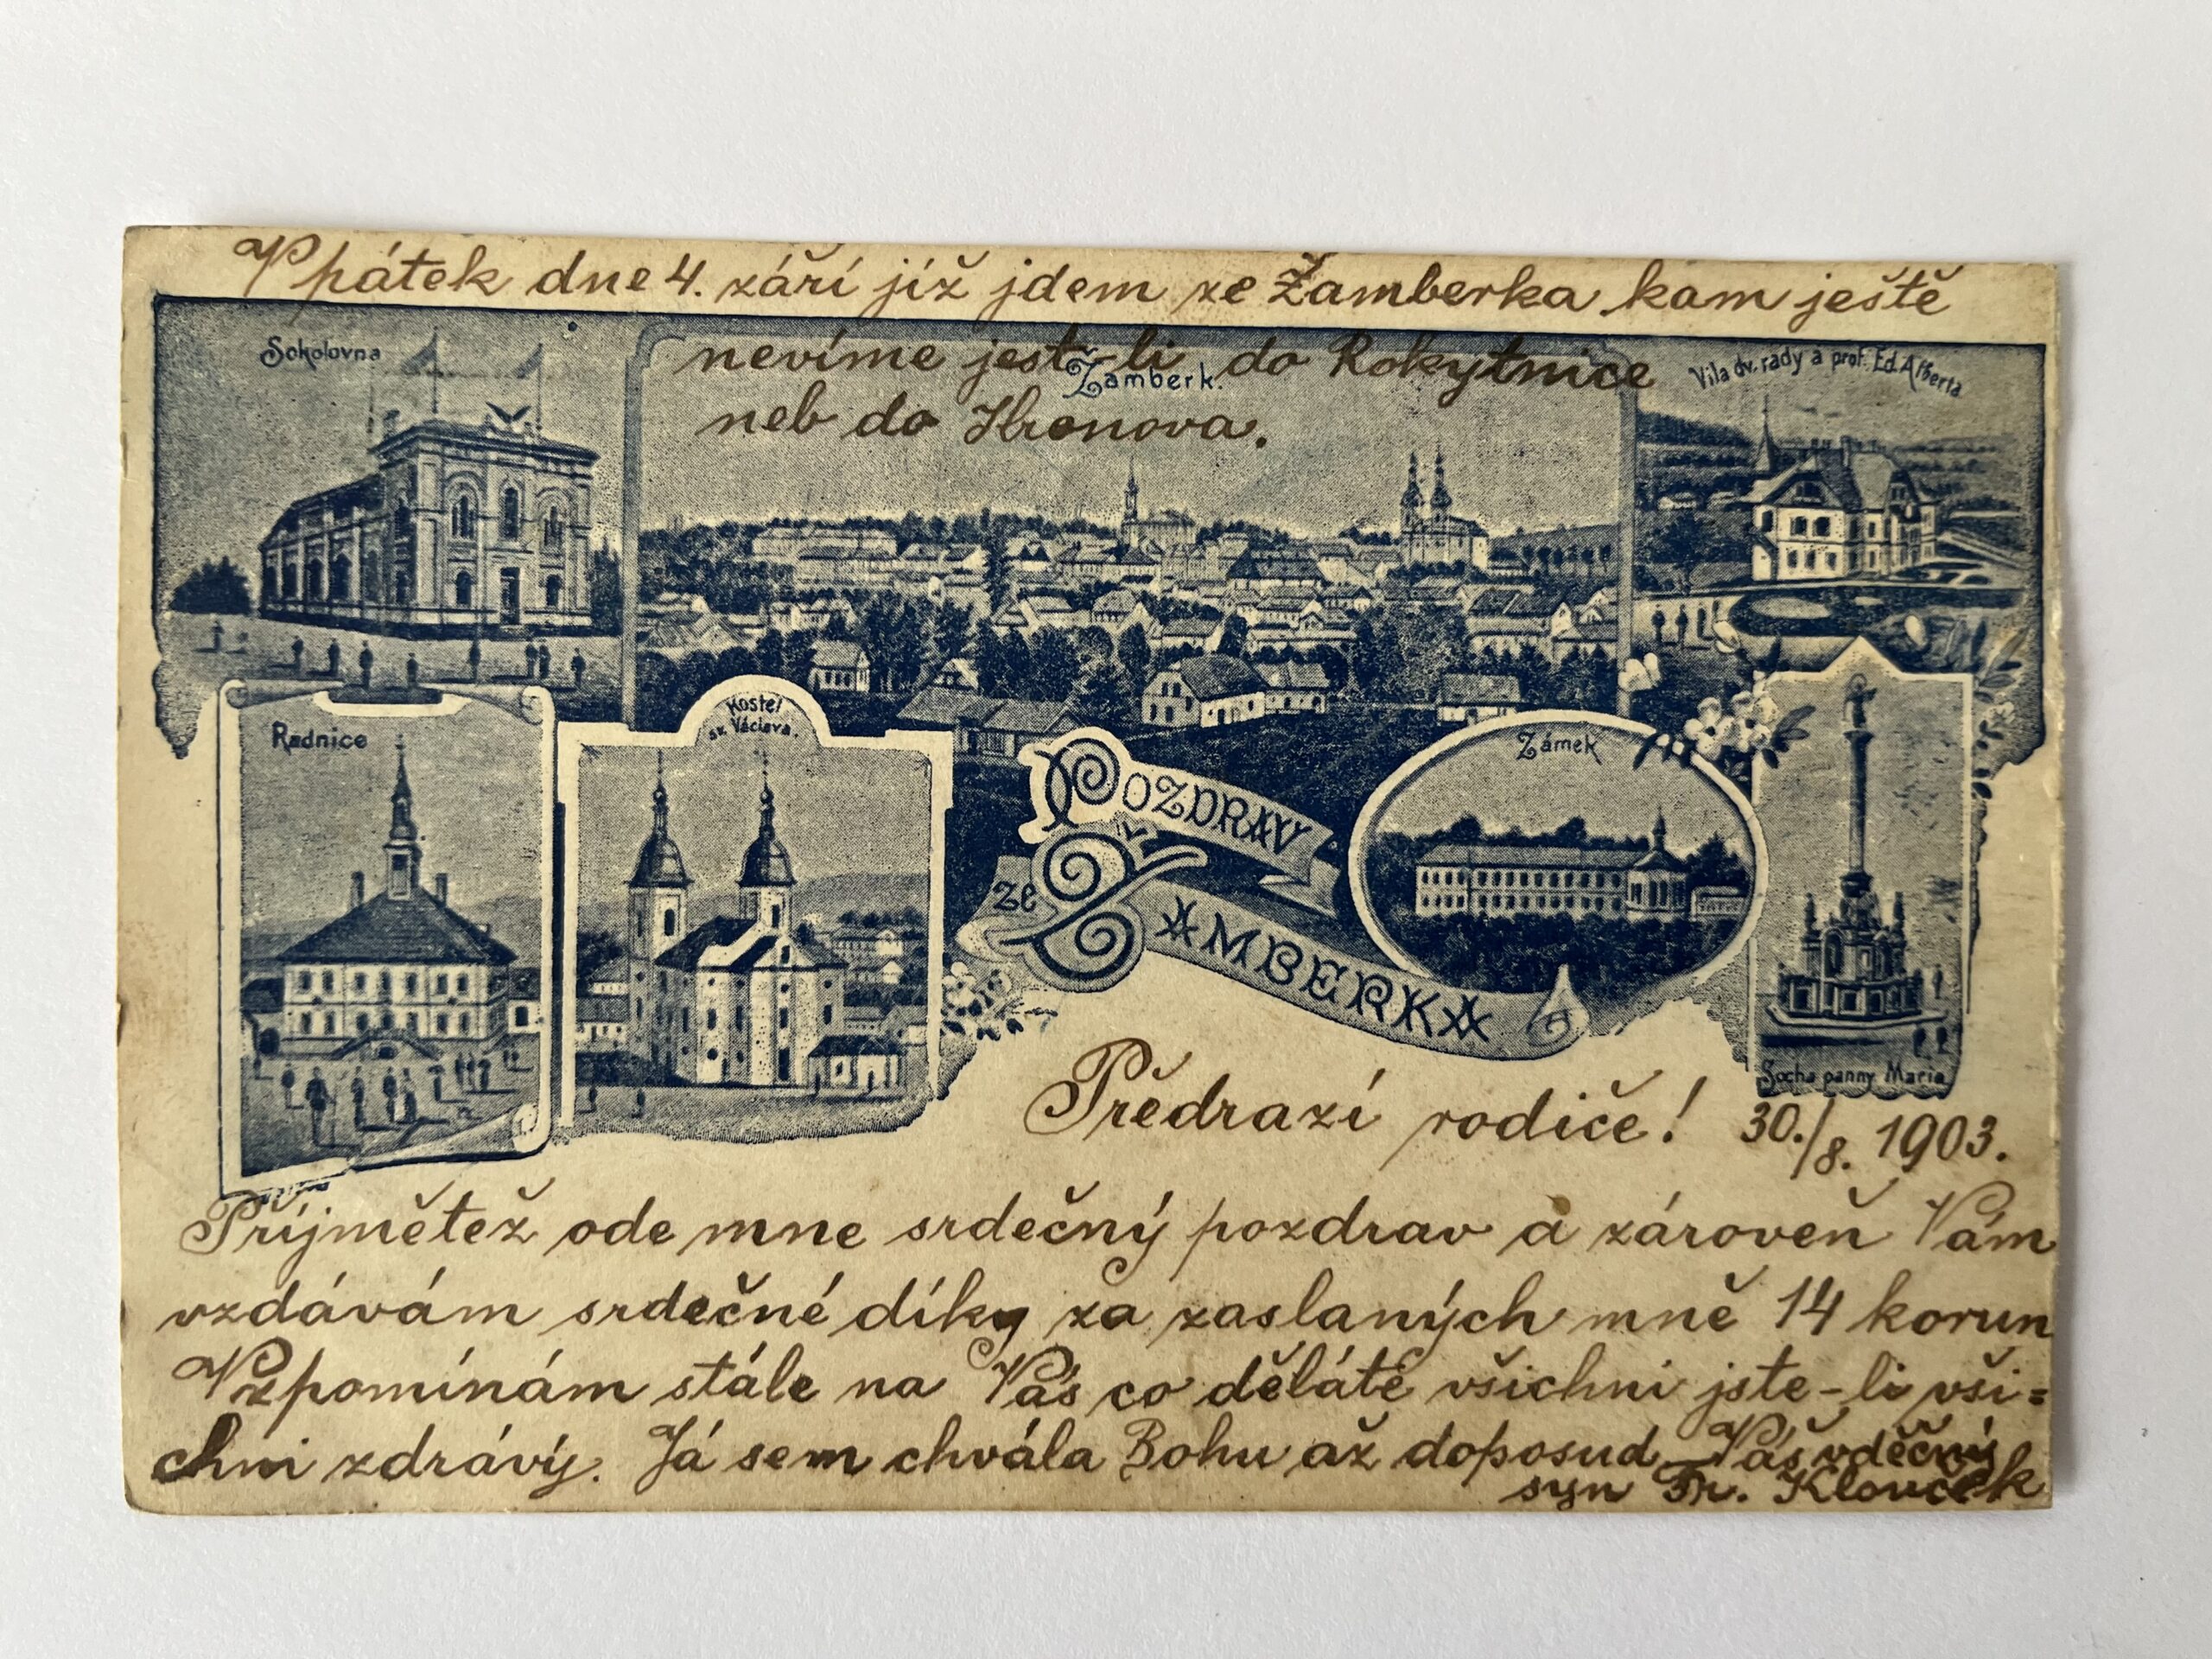 V pátek dne 4. září již jdem ze Žamberka kam ještě
nevíme jest-li do Rokytnice
neb do Hronova.
Sokolovna
Žamberk.
Vila dv. rady a prof. Ed. Alberta
Radnice
Kostel
sv. Václava.
Zámek
Pozdrav
ze
Žamberka
Socha panny Marie
Předrazí rodiče! 30./8. 1903.
Příjmětež ode mne srdečný pozdrav a zároveň Vám
vzdávám srdečné díky za zaslaných mně 14 korun
Vzpomínám stále na Vás co děláte všichni jste-li vši=
chni zdrávý. Já sem chvála Bohu až doposud Váš vděčný
syn Fr.